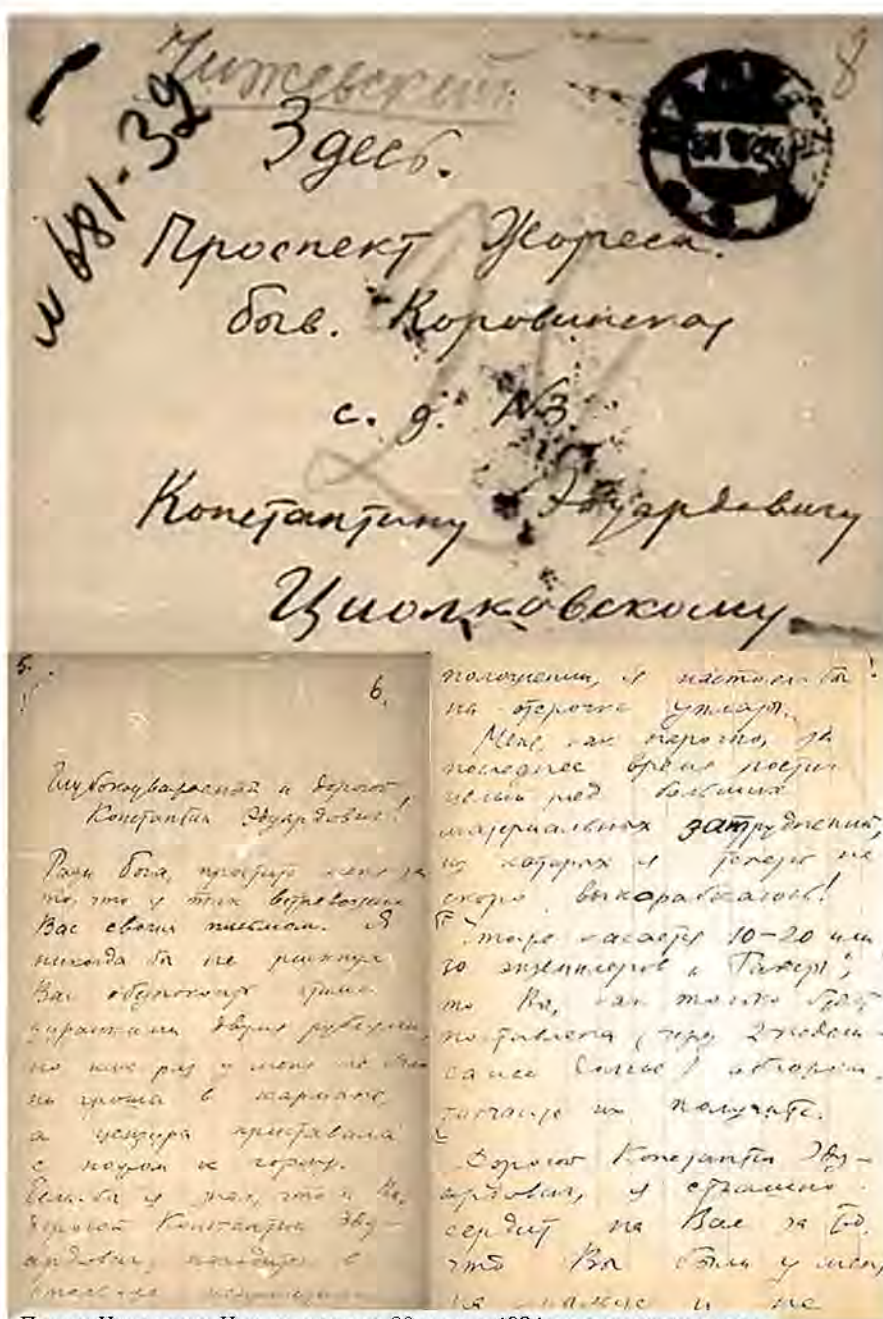 Чижевский
8
№ 681-32
Здесь.
Проспект Жореса.
быв. Коровинская
с. д. №3
Константину Эдуардовичу
Циолковскому
5.
6.
Глубокоуважаемый и дорогой
Константин Эдуардович!
Ради бога, простите меня за
то, что я так встревожил
Вас своим письмом. Я
никогда бы не рискнул
Вас обеспокоить
двумя рублями,
но как раз у меня не было
ни гроша в кармане,
а цензура приставала
с ножом к горлу.
Если бы я знал, что и Вы,
дорогой Константин Эду-
ардович, находитесь в
положении, я настоял бы
на отсрочке уплаты.
Меня, как нарочно, за
последнее время постиг
целый ряд больших
материальных затруднений,
из которых я теперь не
скоро выкарабкаюсь!
Что же касается 10-20 или
30 экземпляров
то Вы, как только будет
2 недели
получите.
Дорогой Константин Эду-
ардович, я страшно
сердит на Вас за то,
что Вы были у меня
и не